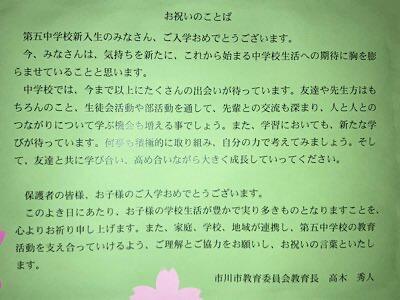 お祝いのことば
第五中学校新入生のみなさん、ご入学おめでとうございます。
今、みなさんは、気持ちを新たに、これから始まる中学校生活への期待に胸を膨
らませていることと思います。
中学校では、今まで以上にたくさんの出会いが待っています。友達や先生方はも
ちろんのこと、生徒会活動や部活動を通して、先輩との交流も深まり、人と人との
つながりについて学ぶ機会も増える事でしょう。また、学習においても、新たな学
びが待っています。何事も積極的に取り組み、自分の力で考えてみましょう。そし
て、友達と共に学び合い、高め合いながら大きく成長していってください。
保護者の皆様、お子様のご入学おめでとうございます。
このよき日にあたり、お子様の学校生活が豊かで実り多きものとなりますことを、
心よりお祈り申し上げます。また、家庭、学校、地域が連携し、第五中学校の教育
活動を支え合っていけるよう、ご理解とご協力をお願いし、お祝いの言葉といたし
ます。
市川市教育委員会教育長 高木 秀人